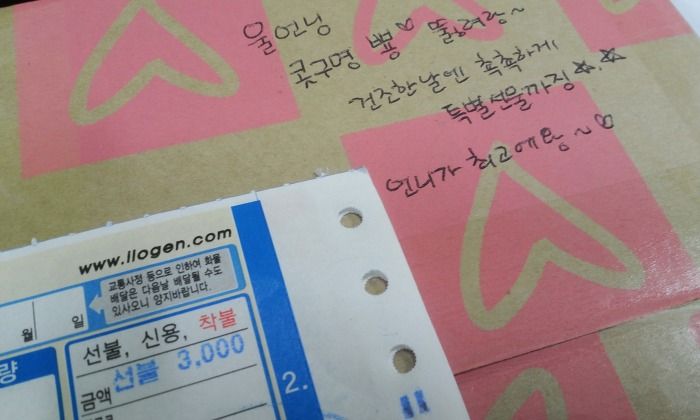 울언닝
콧구멍 뿅♡ 뚫어랑~
건조한날엔 촉촉하게
특별선물까징☆.☆
언니가 최고에용~♡
www.ilogen.com
교통사정 등으로 인하여 화물
배달은 다음날 배달될 수도
있사오니 양지바랍니다.
월 일
량
선불, 신용, 착불
선불 3,000
금액
2.